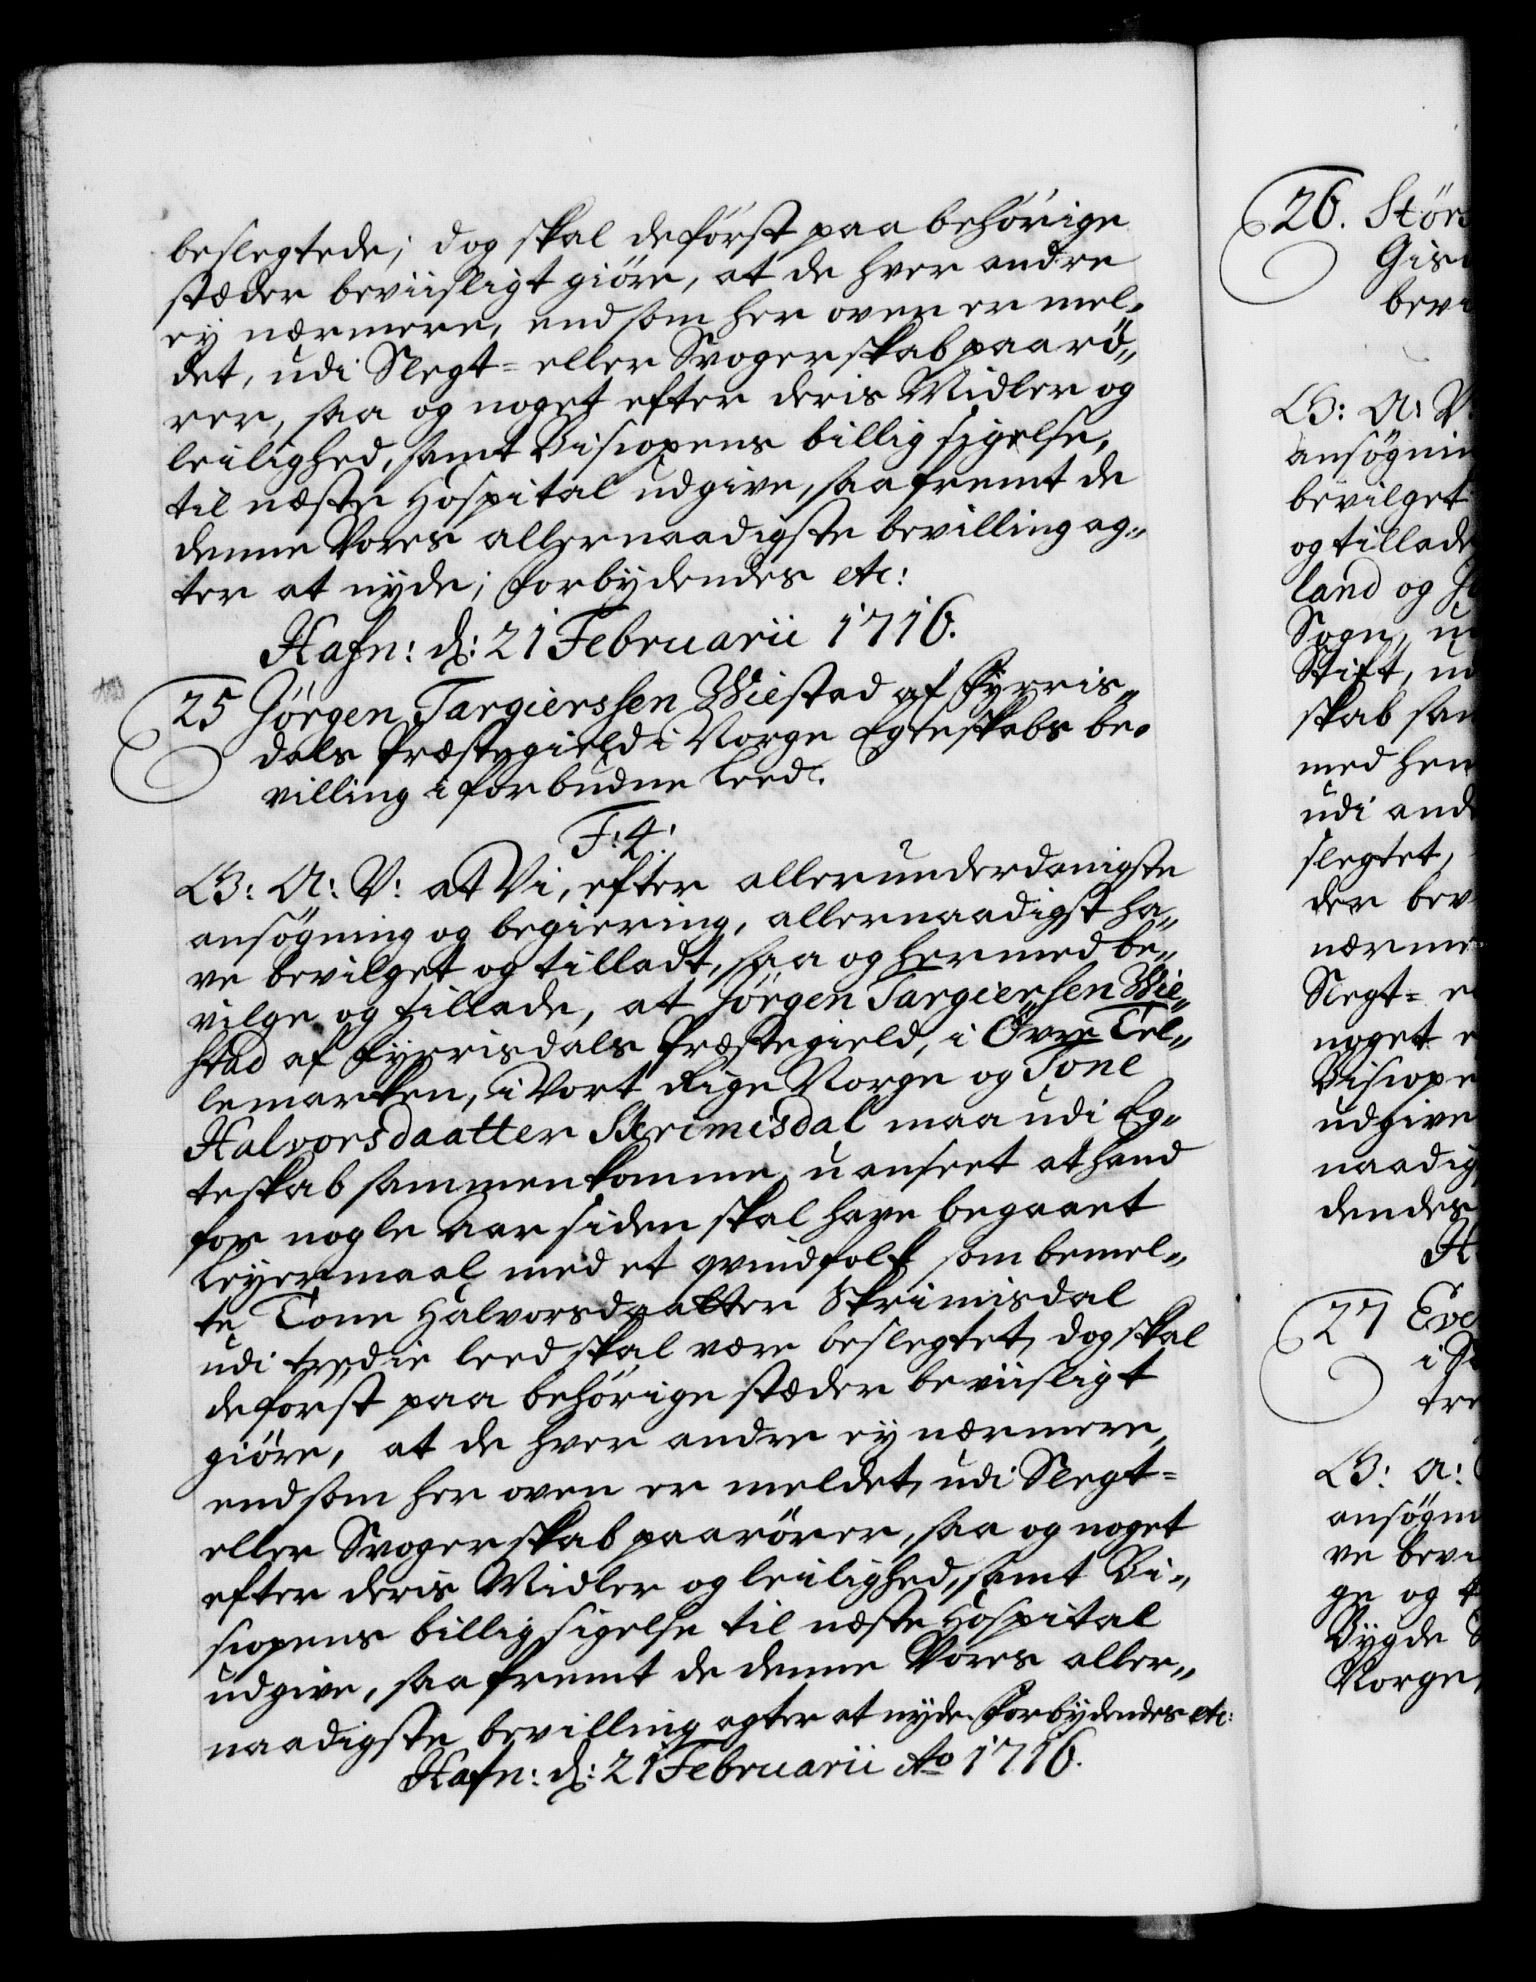 beslegtede; dog skal de först paa behörige
stæder beviisligt giöre, at de hver andre
ey nærmere, end som her oven er mel„
det, udi Slegt= eller Svogerskab paarö„
rer, saa og noget efter deris Midler og
leilighed, samt Bisopens billig sigelse,
til næste Hospital udgive, saafremt de
denne Vores allernaadigste bevilling ag„
ter at nyde; forbydendes etc:
Hafn: d: 21 Februarii 1716.
25 Jörgen Targierssen Wiestad af Fyrris„
dals Præstegield i Norge Egteskabs be„
villing i forbudne Leed.
F: 4:
G: A: V: at Vi, efter allerunderdanigste
ansögning og begiering, allernaadigst ha„
ve bevilget og tilladt, saa og hermed be„
vilge og tillade, at Jörgen Targiersen Wie„
stad af Fyrrisdals Præstegield, i Övre Tel„
lemarken, i Vort Rige Norge og Tone
Halvorsdaatter Skrimisdal maa udi Eg„
teskab sammenkomme, uanseet at hand
for nogle Aar siden skal have begaaet
Leyermaal med et qvindfolk som bemel„
te Tone Halvorsdaatter Skrimisdal
udi tredie leed skal være beslegtet, dog skal
de först paa behörige stæder beviisligt
giöre, at de hver andre ey nærmere,
end som her oven er meldet, udi Slegt=
eller Svogerskab paarörer, saa og noget
efter deris Midler og leilighed, samt Bi„
siopens billig sigelse til næste Hospital
udgive, saafremt de denne Vores aller„
naadigste bevilling agter at nyde. Forbydendes etc:
Hafn: d: 21 Februarii Ao 1716.
26. Störs
Gis
bevi
G: A: V:
ansögnin
bevilget
og tillade
land og
Sogn, u
Stift, u
skab sam
med hen
udi and
slegtet,
der bev
nærme
Slegt= e
noget e
Bisiope
udgive
naadig
dendes
H
27 Eve
i
tre
G: A:
ansögni
ve bevi
ge og t
Bygde
Norge,